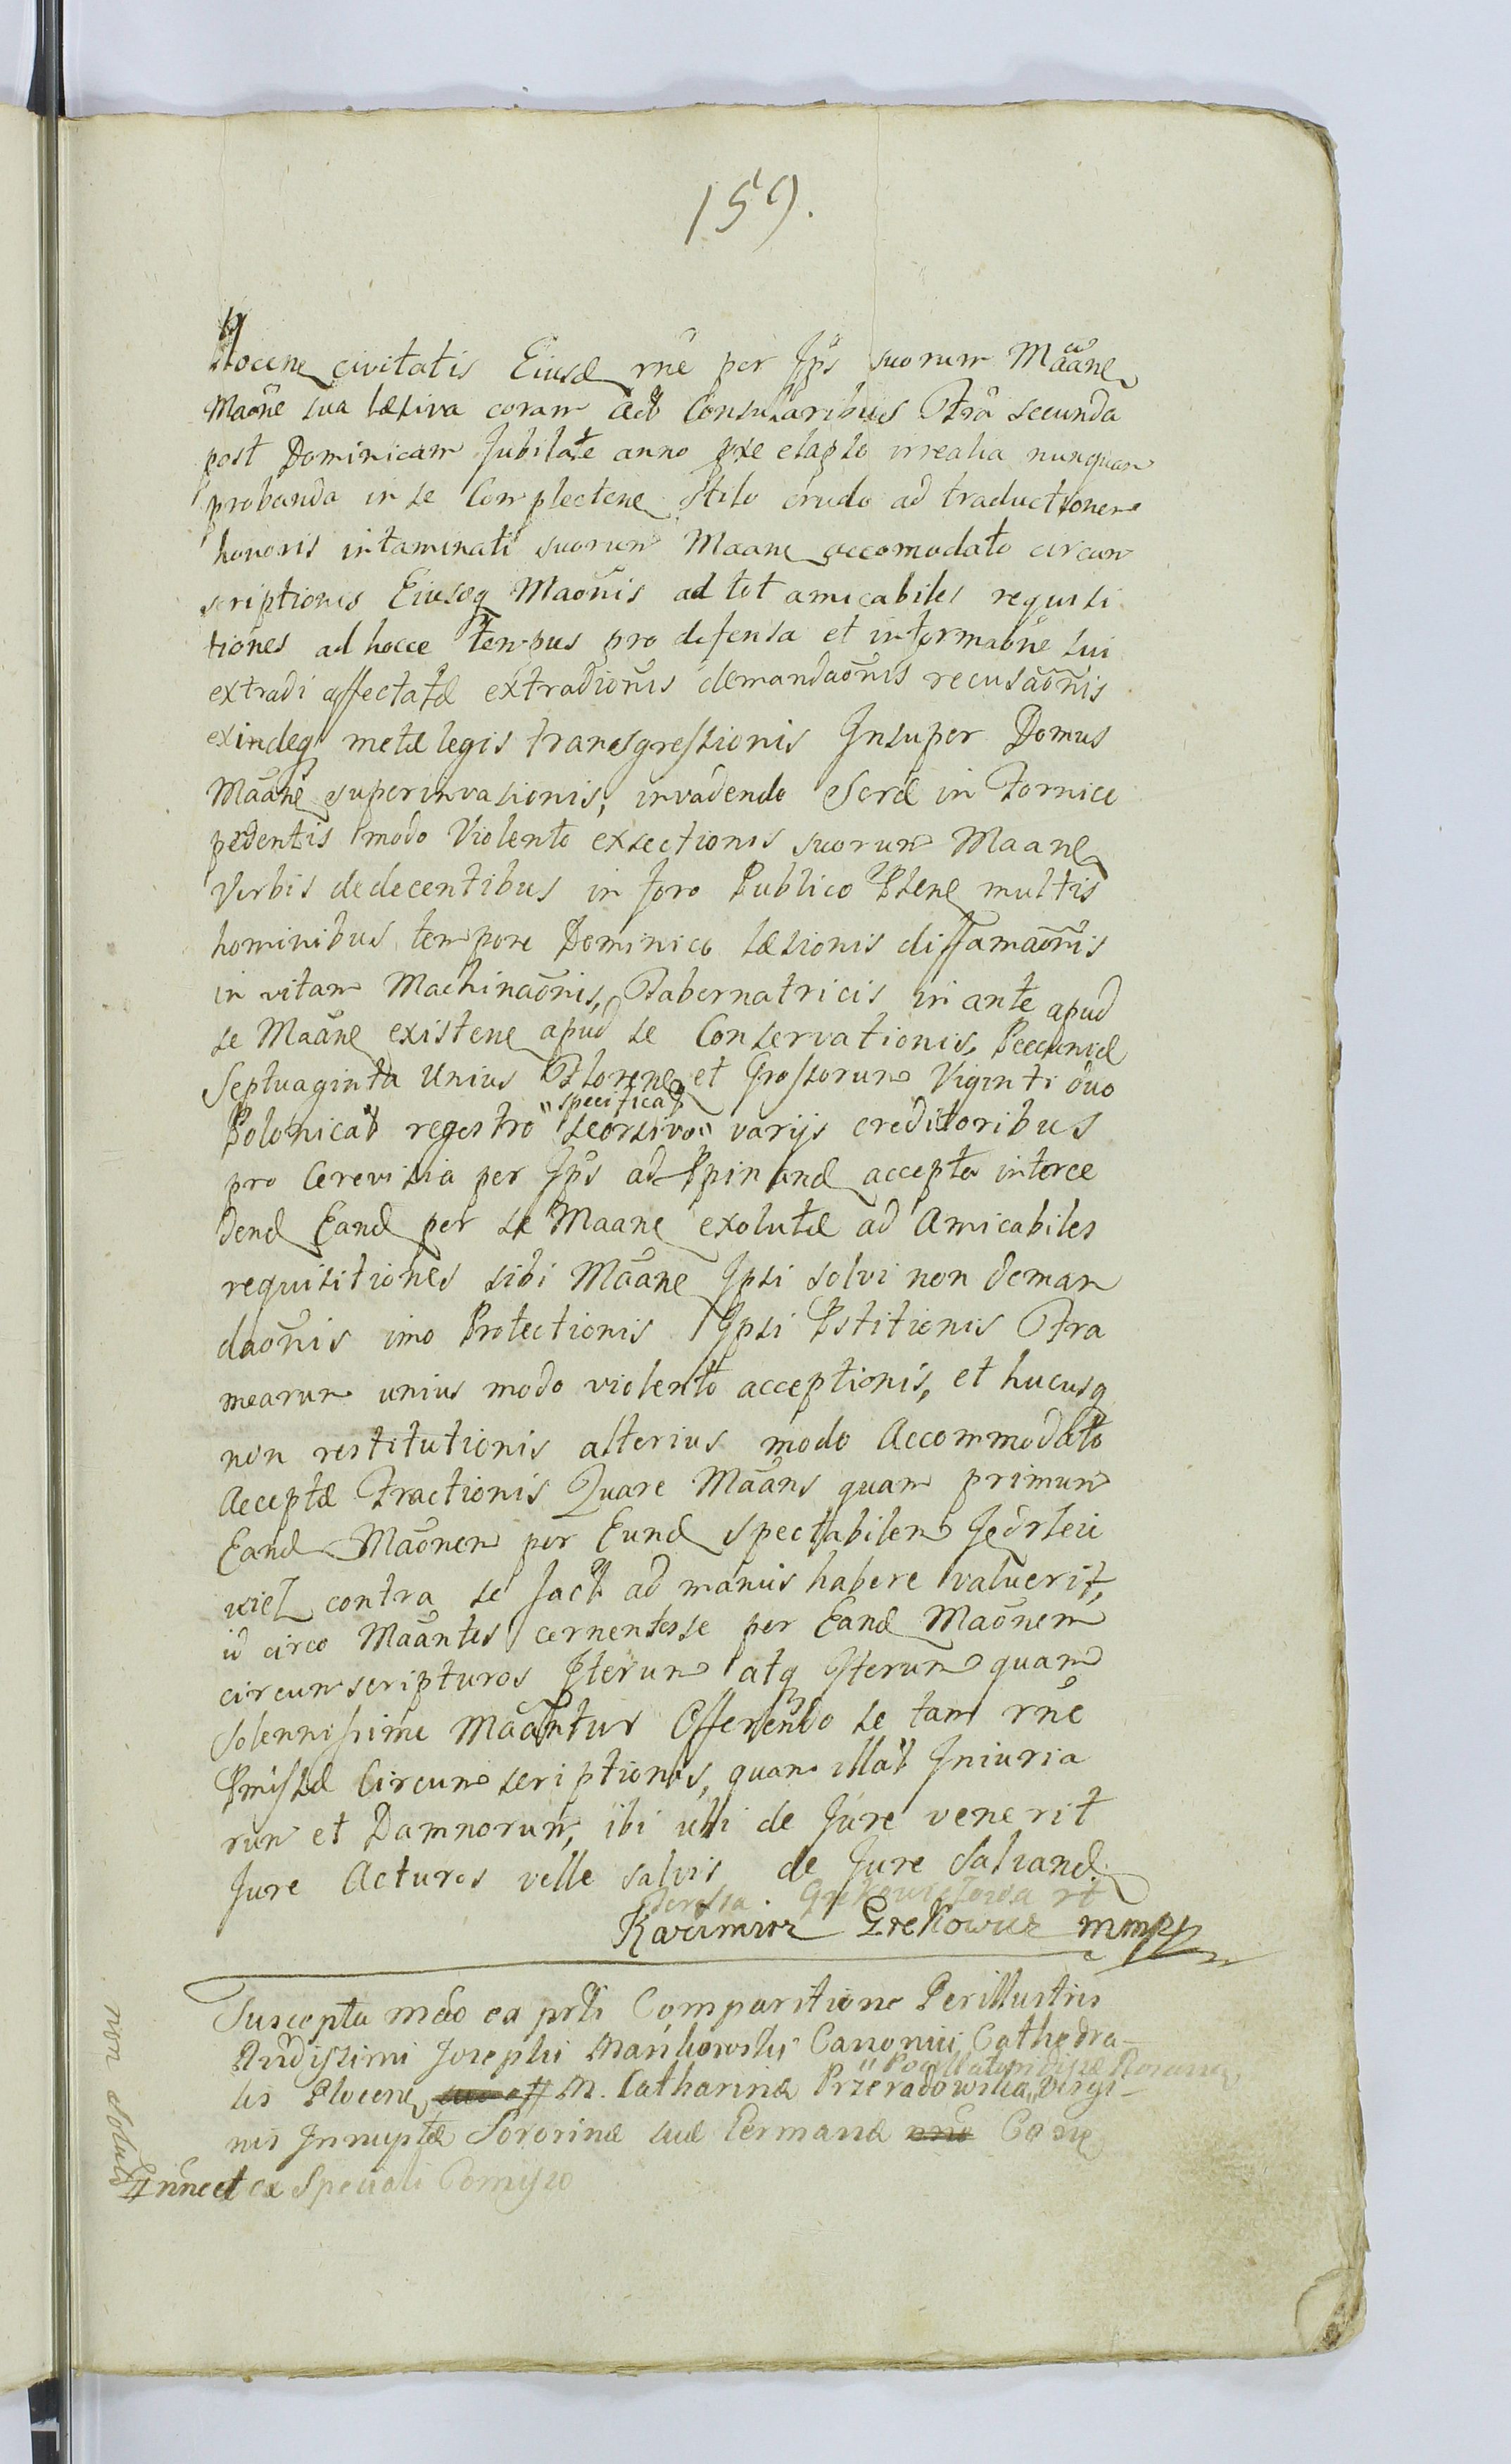 159.
Plocen civitatis Eiusd rñe per Jps suorum Maane
Maõne sua læsiva coram Act Consularibus Fria secunda
post Dominicam Jubilate anno pxe elapso irrealia nunquam
probanda in se Complecten stilo crudo ad traductionem
honoris intaminati suorum Maane accomodato circum
scriptiones Eiusdq Maõnis ad tot amicabiles requisi
tiones ad hocce tempus pro defensa et informaõne sui
extradi affectatæ extradionis demandaõnis recusaõnis
exindeq metæ legis transgressionis Insuper Domus
Maane superinvasionis, invadendo Seræ in Fornice
pedentis modo Violento exsectionis suorum Maane
Verbis dedecentibus in foro Publico Psene multis
hominibus tempore Dominico læsionis diffamaõnis
in vitam Machinaõnis, Tabernatricis in ante apud
se Maane existene apud se Conservationis, Pecuniæ
Septuaginta Unius Florene et Grossorum Viginti duo
Polonicat regestro "specificat" seorsivo varijs creditoribus
pro Cerevisia per Jps ad Ppinand accepta interce
dend Eand per se Maane exolutæ ad Amicabiles
requisitiones sibi Maane Ipsi solvi non deman
daõnis imo Protectionis Ipsi Pstitionis Fra
mearum unius modo violento acceptionis, et hucusq
non restitutionis alterius modo Accommodato
Acceptæ Fractionis Quare Maans quam primum
Eand Maõnem per Eund spectabilem
contra se fact ad manus habere valuerit,
id circo Maantes cernentes se per Eand Maõnem
circumscripturos Iterum atq Iterum quam
solennissime Maantur Offerendo se tam rñe
Pmissæ Circumscriptionis, quam illat Iniuria
rum et Damnorum, ibi ubi de Jure venerit
Jure Acturos velle salvis de Jure Salvand
Teressa Grekowiczowa
Kazimirz Grekowicz mmpp
Suscepta mão ex prti Comparitione Perillustris
Rndissimi Josephi Mańkowski Canonici Cathedra
lis Plocen M. Catharinæ Przeradowska, Virgi
nis Innuptæ Sororinæ suæ Germanæ
nñe et ex Speciali Comisso
non solut